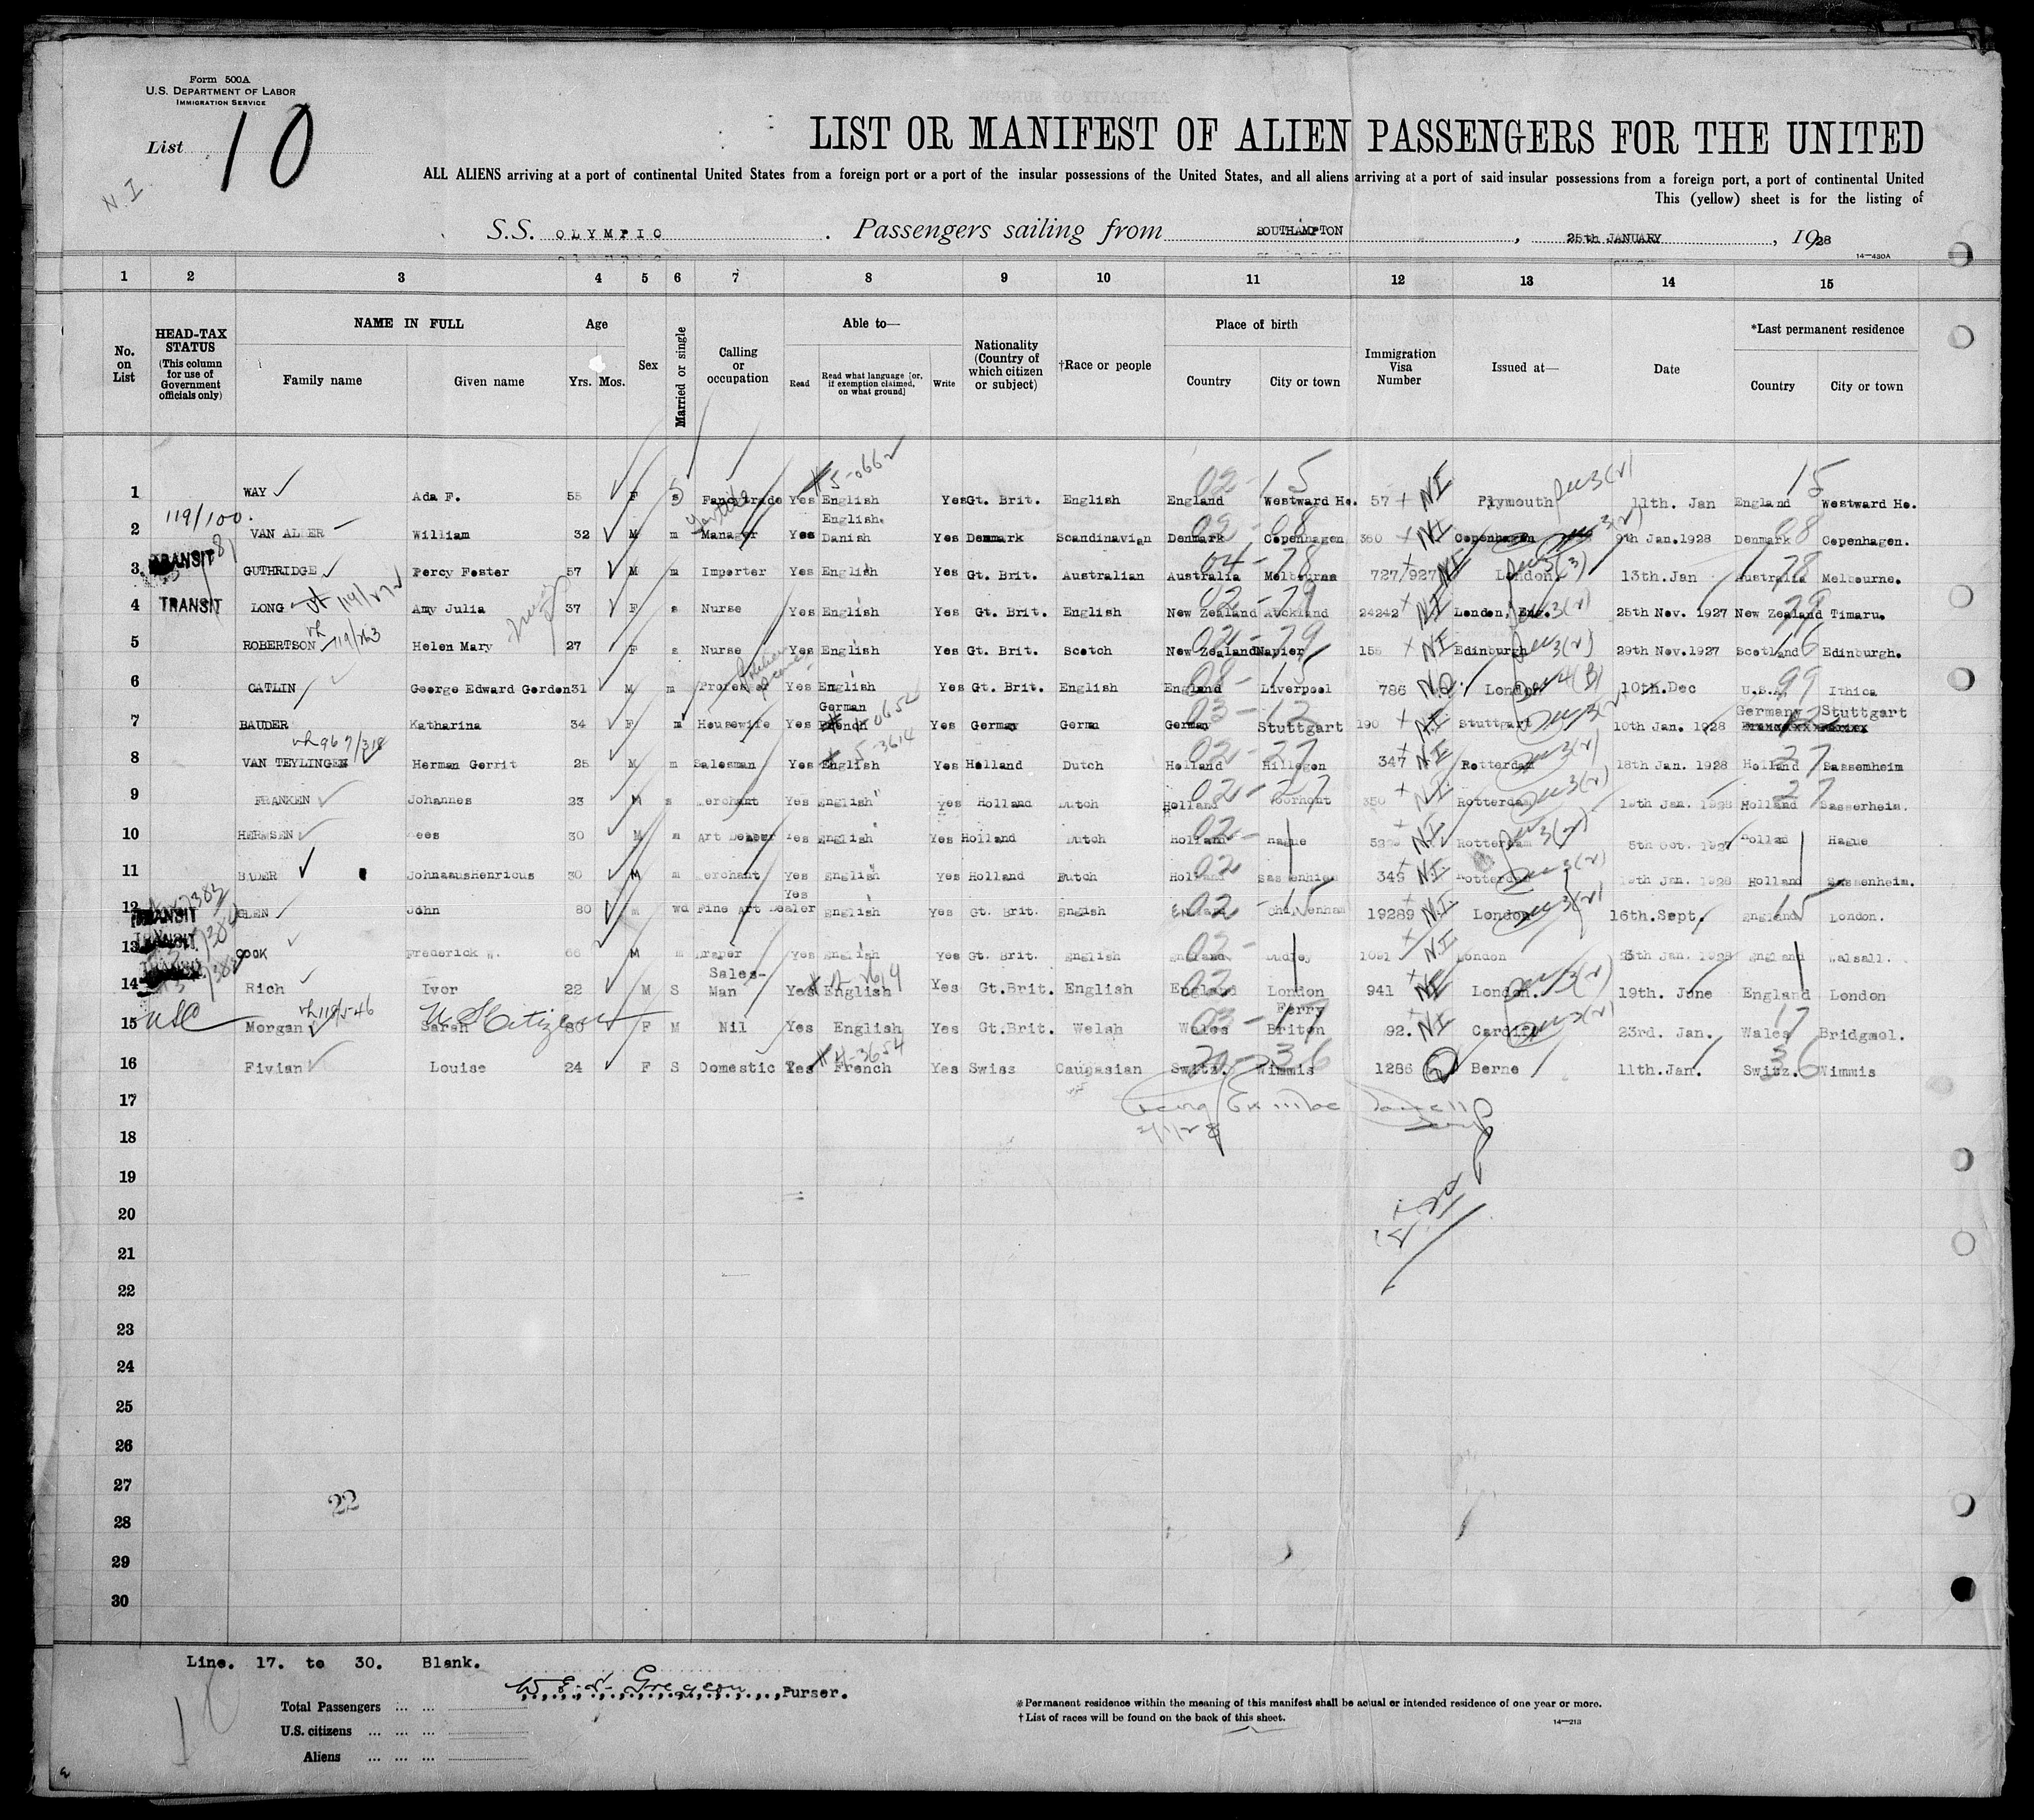 Form 500A
U.S. DEPARTMENT OF LABOR
IMMIGRATION SERVICE
List 10
N.I.
LIST OR MANIFEST OF ALIEN PASSENGERS FOR THE UNITED
ALL ALIENS arriving at a port of continental United States from a foreign port or a port of the insular possessions of the United States, and all aliens arriving at a port of said insular possessions from a foreign port, a port of continental United
This (yellow) sheet is for the listing of
S.S. OLYMPIC. Passengers sailing from SOUTHAMPTON, 25th JANUARY, 1928
14—430A
1 2 3 4 5 6 7 8 9 10 11 12 13 14 15
No. on List
HEAD-TAX STATUS (This column for use of Government officials only)
NAME IN FULL Family name Given name
Age Yrs. Mos.
Sex
Married or single
Calling or occupation
Able to— Read Read what language [or, if exemption claimed, on what ground] Write
Nationality (Country of which citizen or subject)
†Race or people
Place of birth Country City or town
Immigration Visa Number
Issued at—
Date
*Last permanent residence Country City or town
1 WAY Ada F. 55 F s Fancytrade Yes English Yes Gt. Brit. English England Westward Ho. 57 NI Plymouth 11th. Jan England Westward Ho.
5-0662 02-15 15
2 119/100. VAN ALER William 32 M m Manager Yes English. Danish Yes Denmark Scandinavian Denmark Copenhagen 350 NI Copenhagen 9th Jan.1928 Denmark Copenhagen.
02-08 08
3 TRANSIT GUTHRIDGE Percy Foster 57 M m Importer Yes English Yes Gt. Brit. Australian Australia Melbourne 727/927 NI London 13th.Jan Australia Melbourne.
04-78 78
4 TRANSIT LONG Amy Julia 37 F s Nurse Yes English Yes Gt. Brit. English New Zealand Auckland 24242 NI London, Eng. 25th Nov. 1927 New Zealand Timaru.
02-79 79
5 ROBERTSON 119/263 Helen Mary 27 F s Nurse Yes English Yes Gt. Brit. Scotch New Zealand Napier 155 NI Edinburgh 29th Nov.1927 Scotland Edinburgh.
02-79 16
6 CATLIN George Edward Gordon 31 M m Professor Yes English Yes Gt. Brit. English England Liverpool 786 London 10th.Dec U.S.A. Ithica
08-15 99
7 BAUDER Katharina 34 F m Housewife Yes German French Yes German Germn German Stuttgart 190 NI Stuttgart 10th Jan. 1928 Germany Stuttgart
03-12 12
8 VAN TEYLINGEN Herman Gerrit 25 M m Salesman Yes English Yes Holland Dutch Holland Hillegon 347 NI Rotterdam 18th Jan. 1928 Holland Sassemheim
5-3614 02-27 27
9 FRANKEN Johannes 23 M s Merchant Yes English Yes Holland Dutch Holland Voorhout 350 NI Rotterdam Jan. 1928 Holland Sasserheim.
02-27 27
10 HERMSEN Kees 30 M m Art Dealer Yes English Yes Holland Dutch Holland Hague NI Rotterdam 5th Oct. 1927 Holland Hague
02-
11 30 M m Merchant Yes English Yes Holland Dutch Holland 349 NI Rotterdam Jan. 1928 Holland Sassenheim.
02
12 TRANSIT GLEN John 80 m wd Fine Art Dealer Yes English Yes Gt. Brit. English England Cheltenham 19289 N.I. London 16th.Sept. England London.
02-15 15
13 TRANSIT COOK Frederick W. 66 M m Draper Yes English Yes Gt. Brit. English England Dudley 1091 NI London Jan. 1928 England Walsall.
02-
14 Rich Ivor 22 M S Sales-Man Yes English Yes Gt.Brit. English England London 941 NI London. 19th. June England London
02
15 USC Morgan Sarah US Citizen 80 F M Nil Yes English Yes Gt.Brit. Welsh Wales Ferry Briton 92. NI Cardiff 23rd. Jan. Wales Bridgmol.
03-17 17
16 Fivian Louise 24 F S Domestic Yes French Yes Swiss Caucasian Switz. Wimmis 1286 Q Berne 11th.Jan. Switz. Wimmis
4-3654 36 36
17
18
19
20
21
22
23
24
25
26
27
22
28
29
30
Line. 17. to 30. Blank.
Purser.
Total Passengers ... ...
U.S. citizens ... ... ...
Aliens ... ... ...
10
*Permanent residence within the meaning of this manifest shall be actual or intended residence of one year or more.
†List of races will be found on the back of this sheet.
14—213